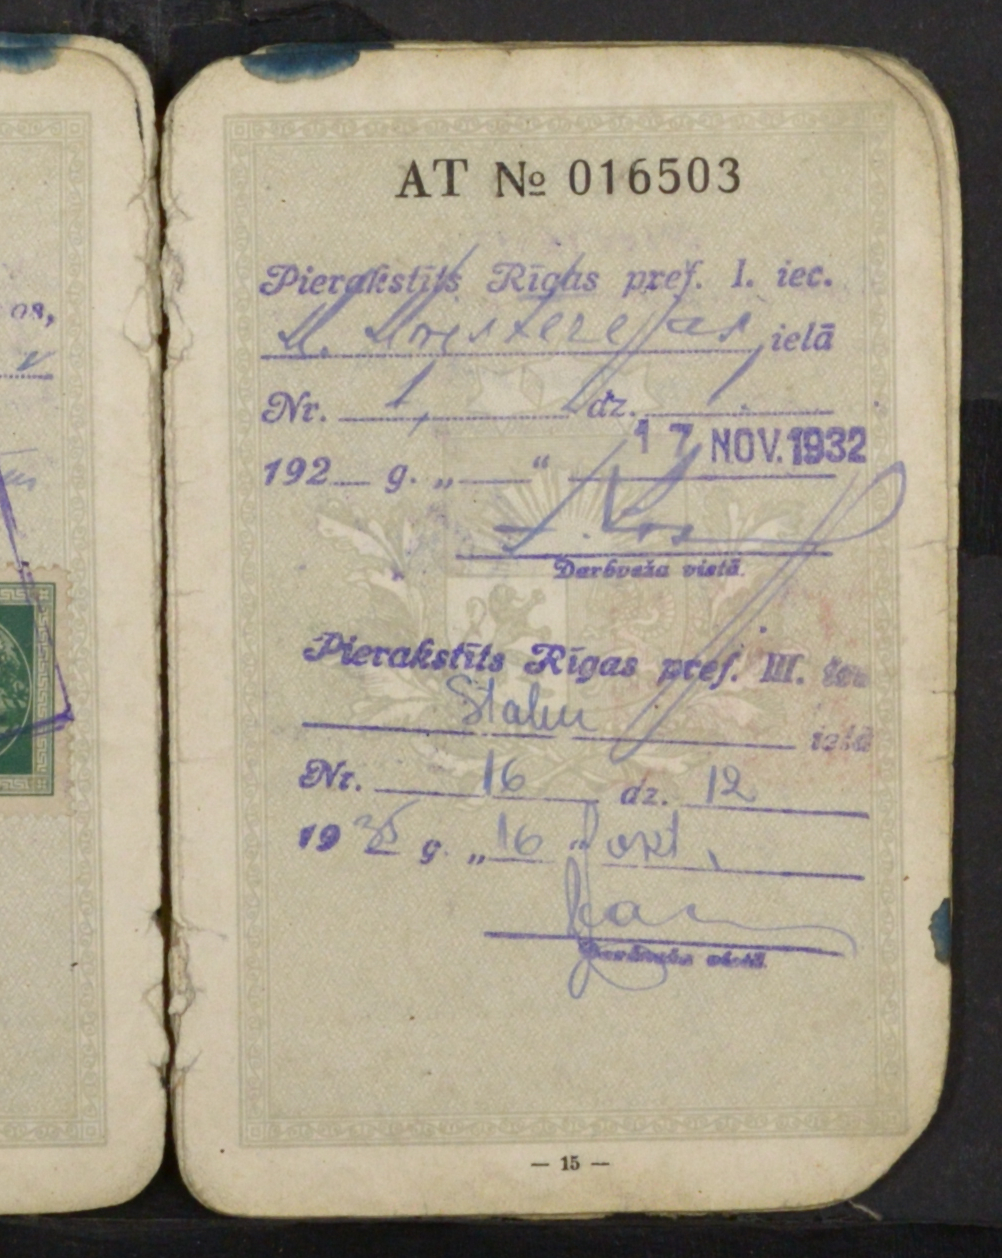 os,
AT № 016503
Pierakstīts Rīgas pref. I. iec.
ielā
Nr. 1 dz. 1
17 NOV. 1932
192 g. „ “
Darbveža vietā.
Pierakstīts Rīgas pref. III. iec
Stabu ielā
Nr. 16 dz. 12
1935 g. „16“ okt.
Darbveža vietā.
— 15 —